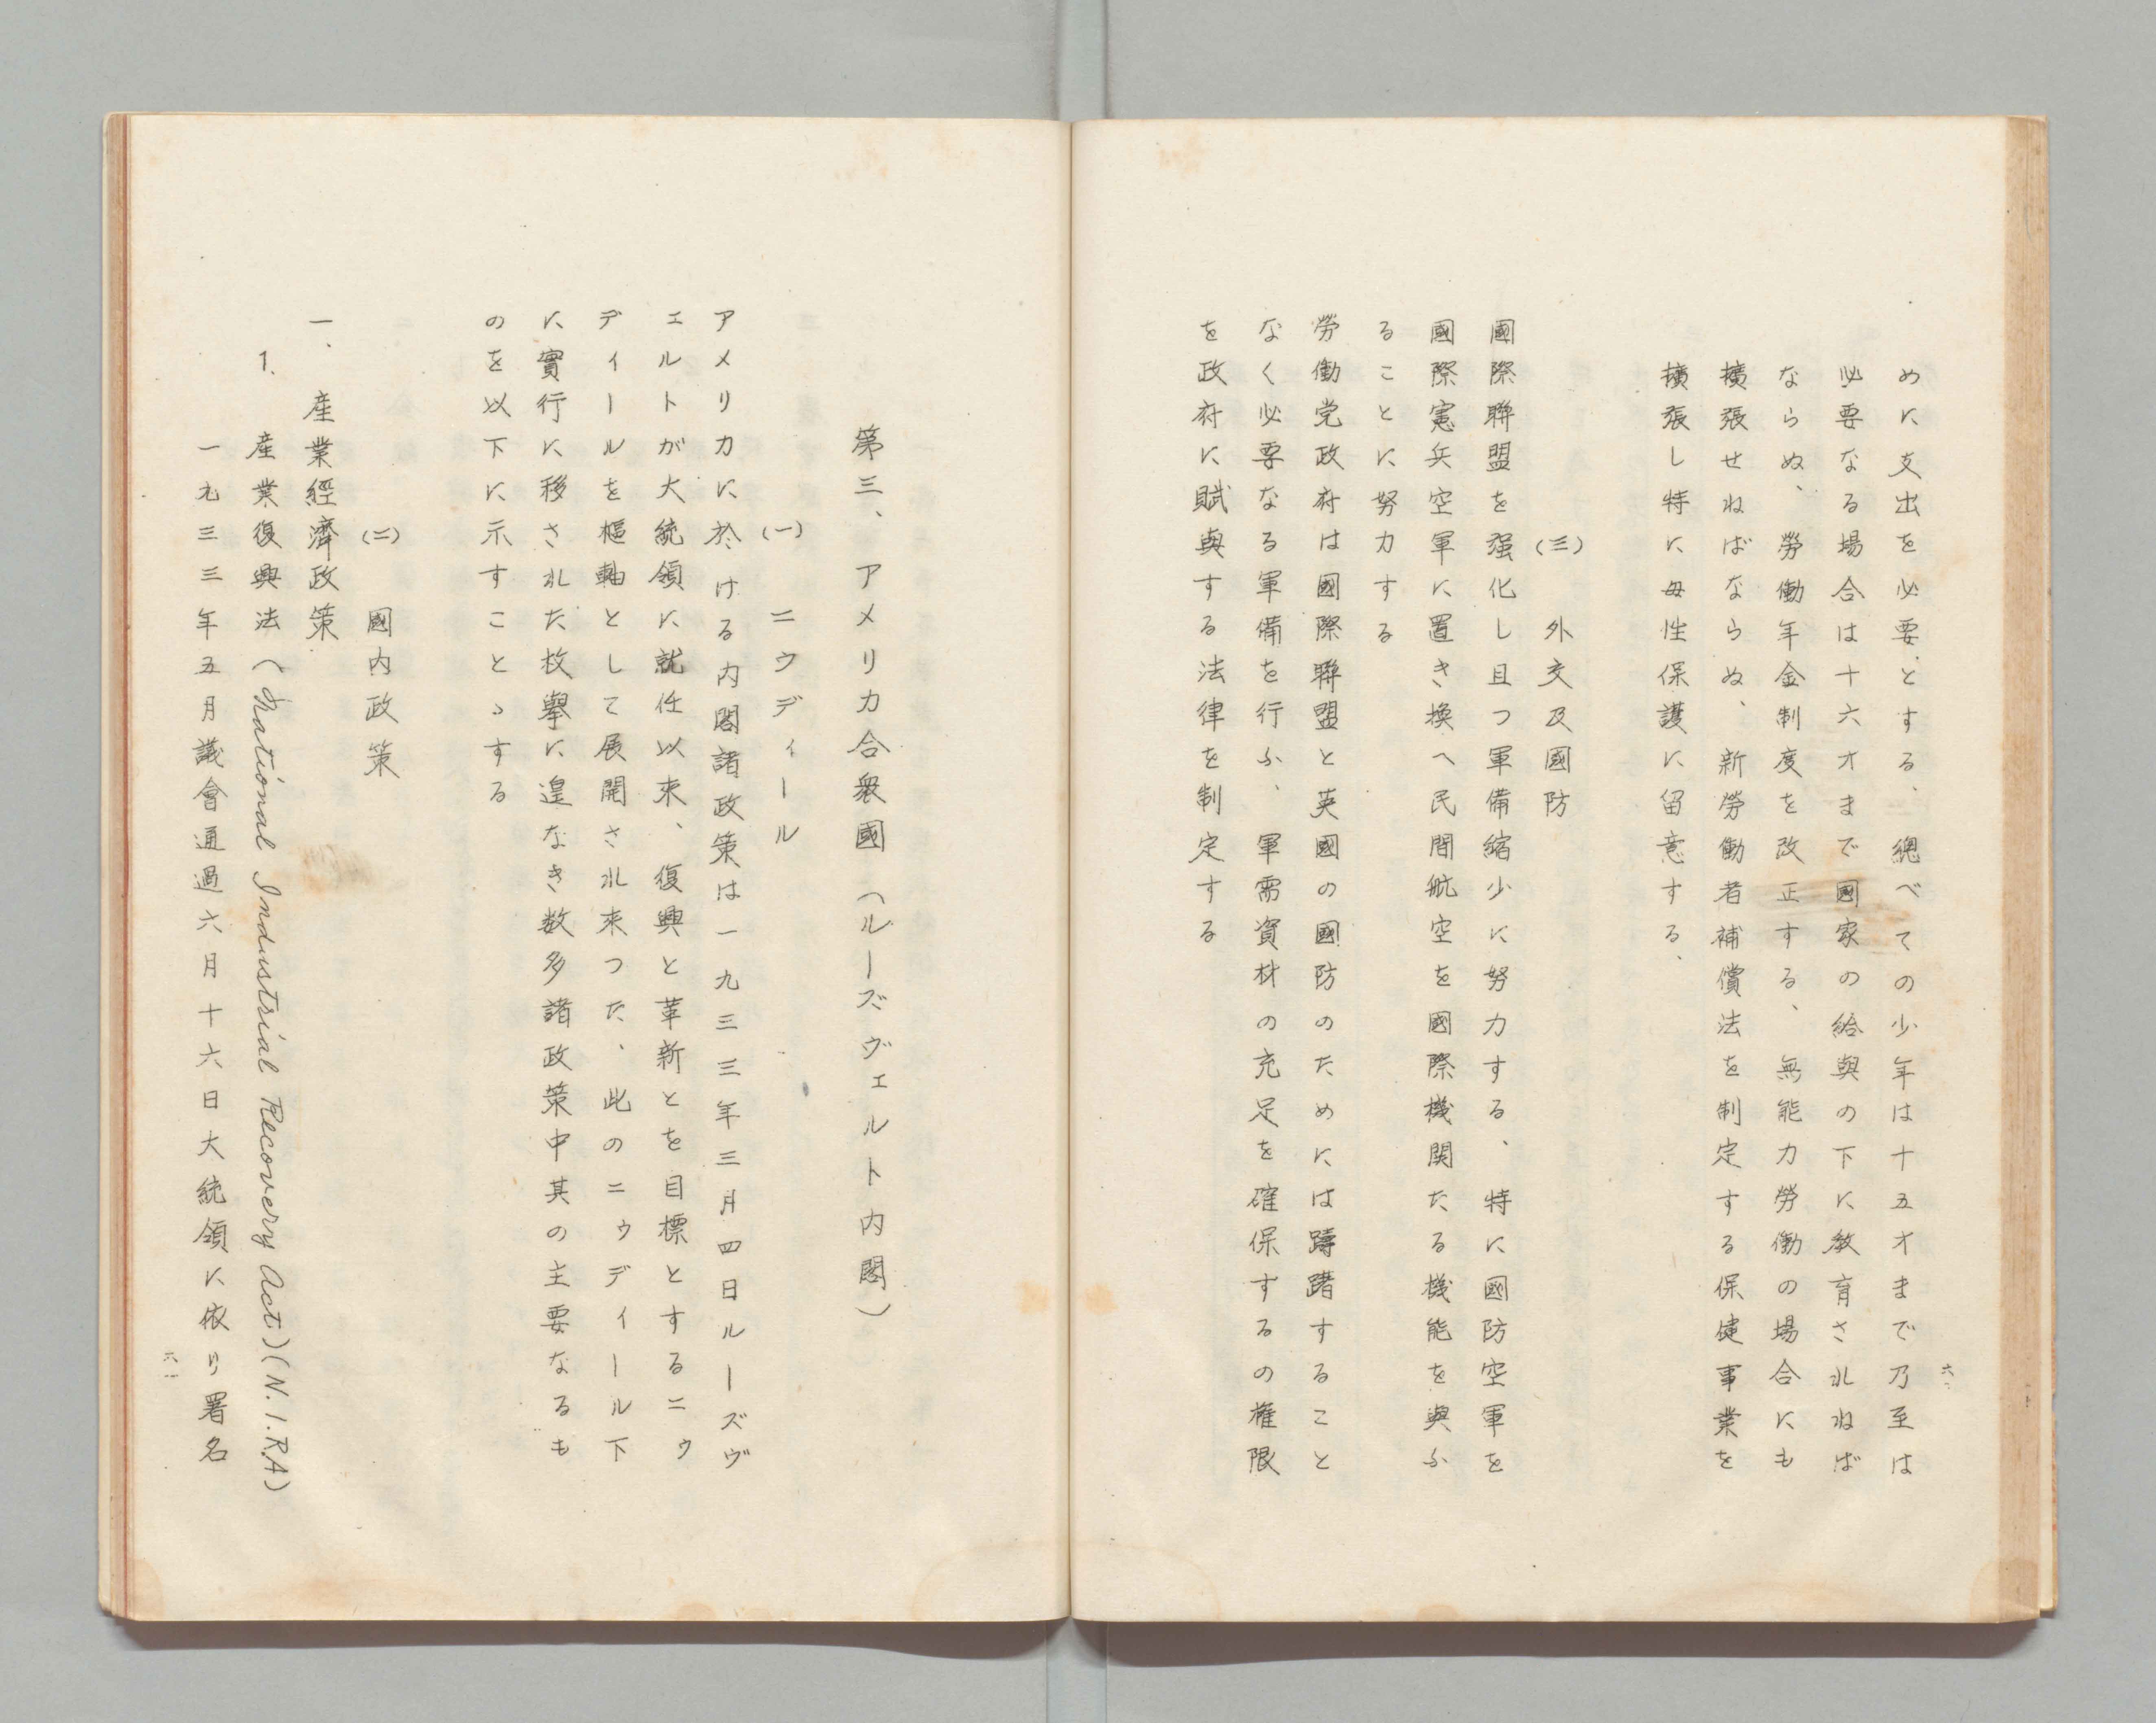 めに支出を必要とする、總べての少年は十五才まで乃至は
必要なる場合は十六才まで國家の給與の下に教育されねば
ならぬ、勞働年金制度を改正する、無能力勞働の場合にも
擴張せねばならぬ、新勞働者補償法を制定する保健事業を
擴張し特に母性保護に留意する、
(三) 外交及國防
國際聯盟を强化し且つ軍備縮少に努力する、特に國防空軍を
國際憲兵空軍に置き換へ民間航空を國際機関たる機能を與ふ
ることに努力する
勞働党政府は國際聯盟と英國の國防のためには躊躇すること
なく必要なる軍備を行ふ、軍需資材の充足を確保するの権限
を政府に賦與する法律を制定する
六〇
第三、アメリカ合衆國(ルーズヴェルト内閣)
(一) ニウディール
アメリカに於ける内閣諸政策は一九三三年三月四日ルーズヴ
ェルトが大統領に就任以来、復興と革新とを目標とするニウ
ディールを樞軸として展開され来つた、此のニウディール下
に實行に移された枚擧に遑なき数多諸政策中其の主要なるも
のを以下に示すことゝする
(二) 國内政策
一、産業經濟政策
1. 産業復興法(National Industrial Recovery Act)(N.I.R.A)
一九三三年五月議會通過六月十六日大統領に依り署名
六一